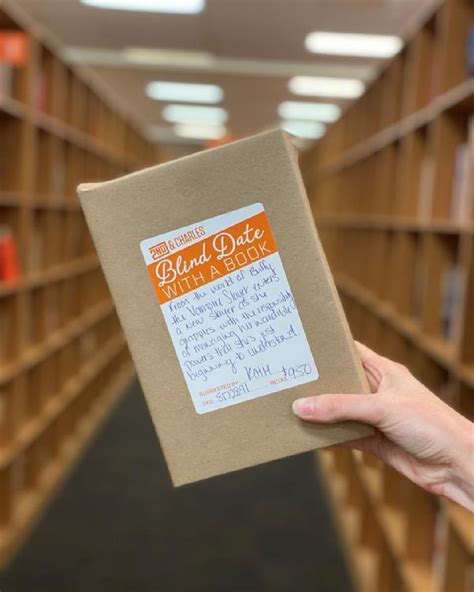 2ND & CHARLES
Blind Date
WITH A BOOK
From the world of Buffy
the Vampire Slayer enters
a new slayer as she
grapples with the responsibility
of managing her incredible
powers that she's just
beginning to understand
SUGGESTED BY: KATH
SKU: 8172891 RETAIL: $9.50